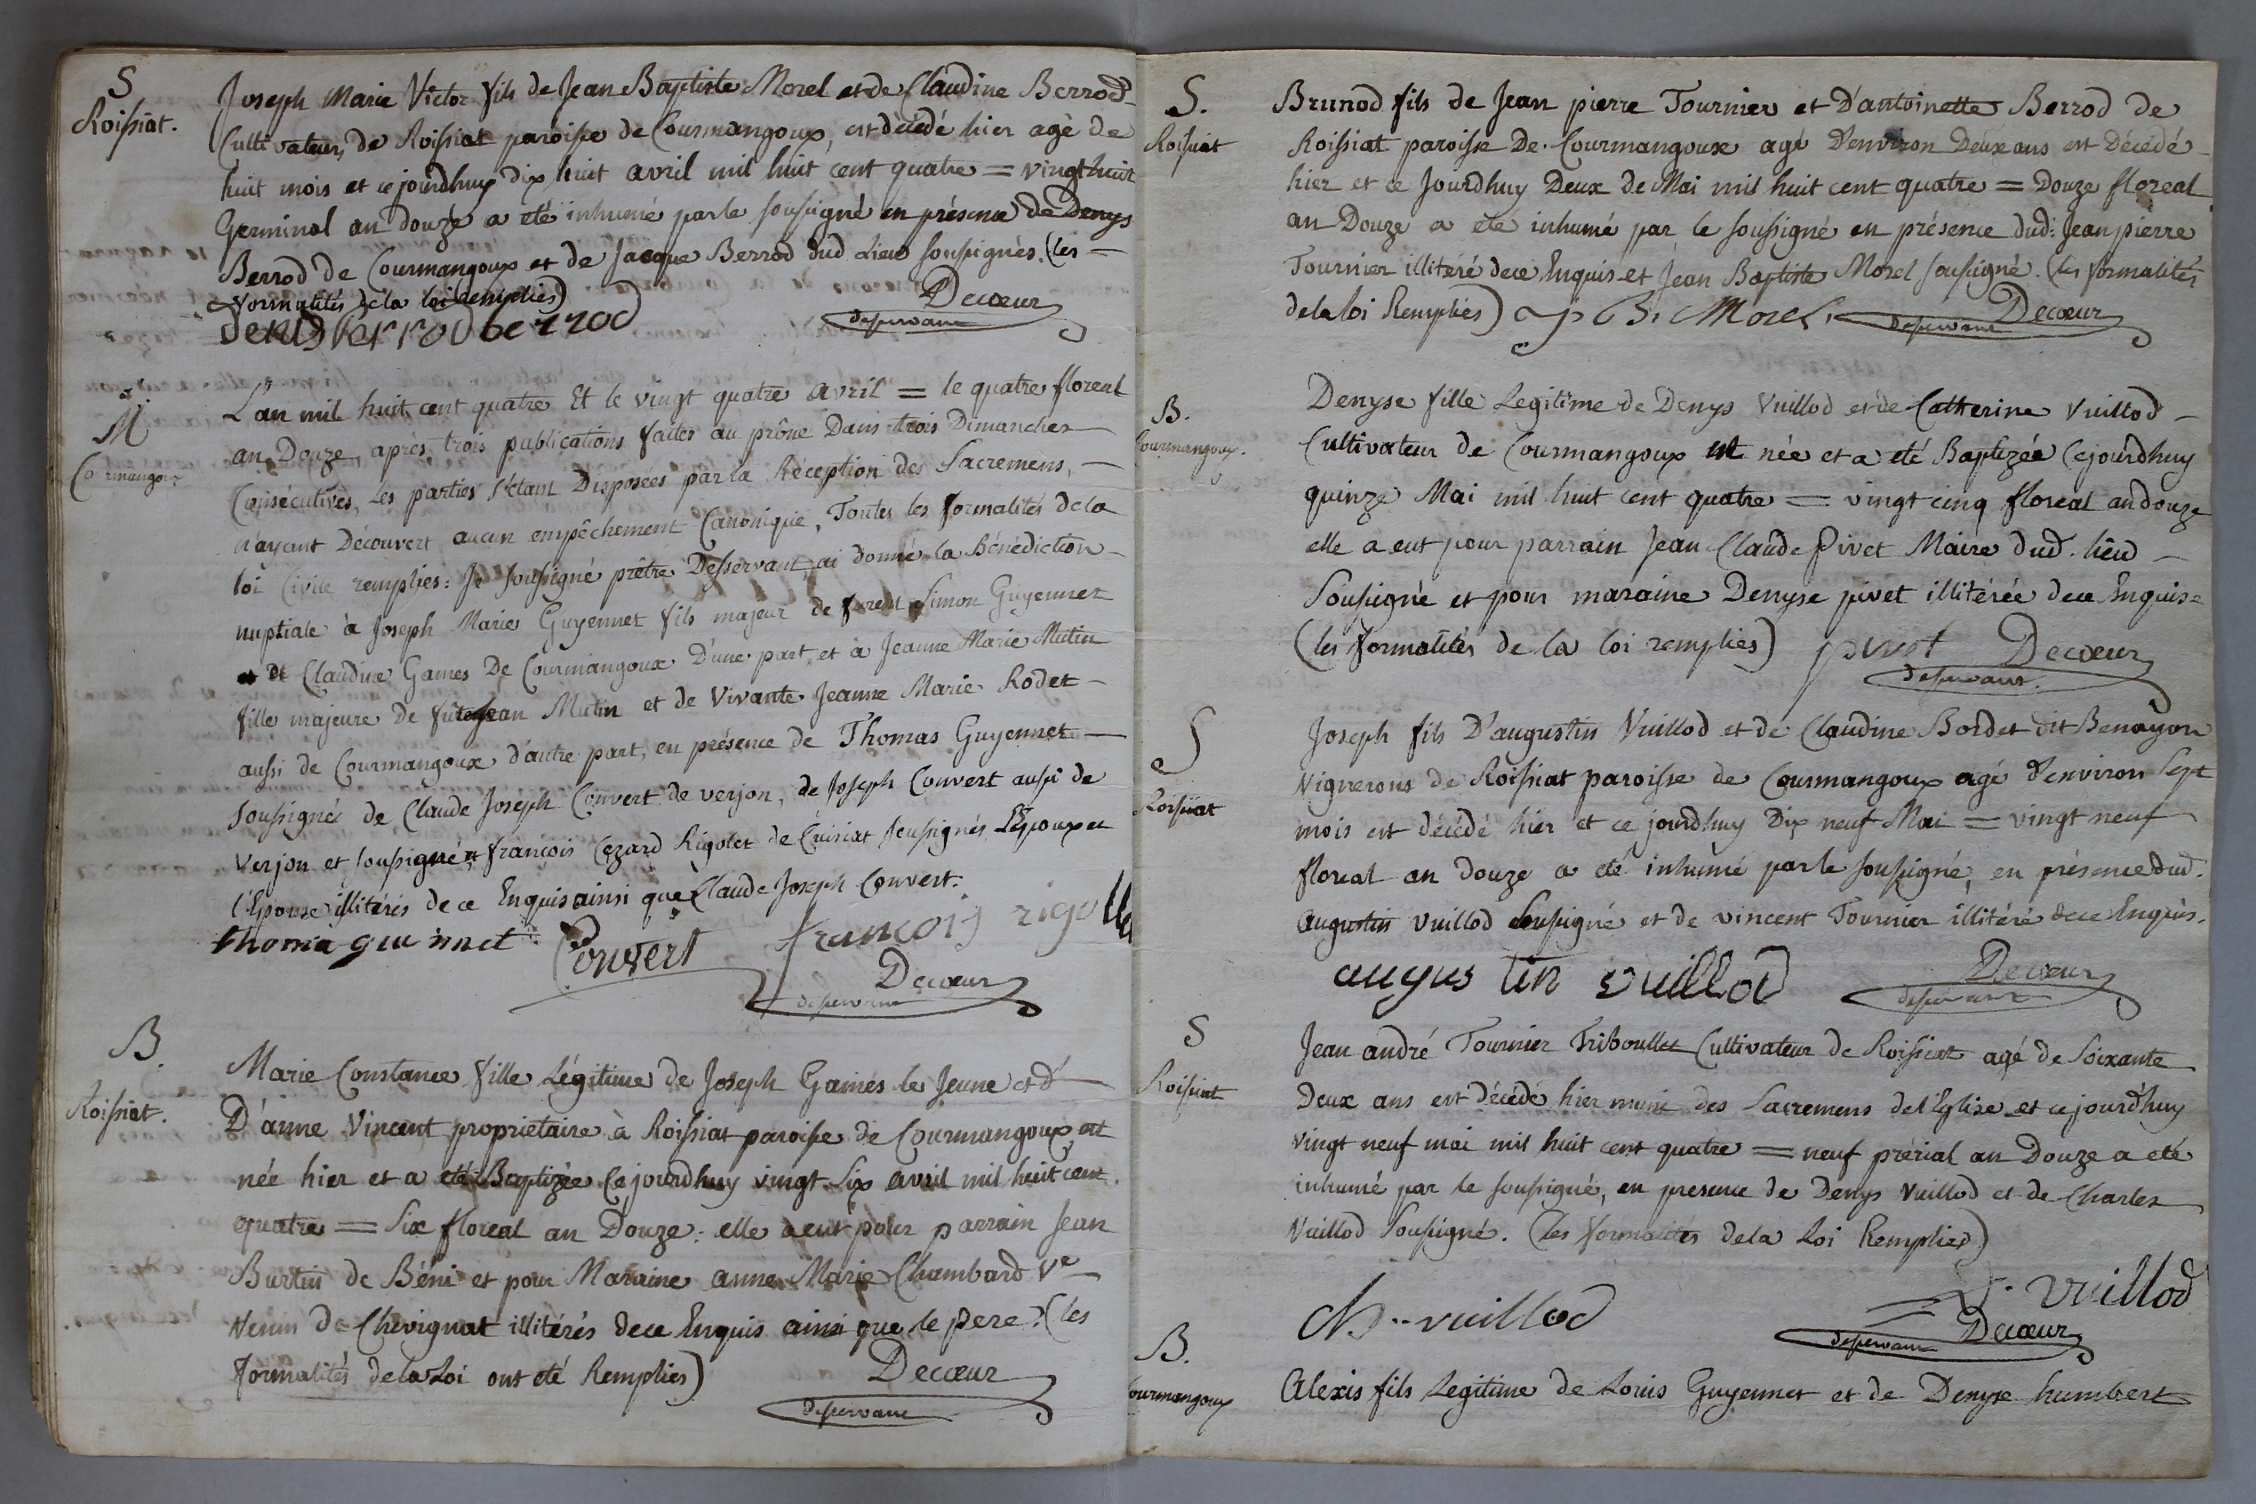 S
Roissiat.
Joseph Marie Victor fils de Jean Baptiste Morel et de Claudine Berrod
Cultivateurs de Roissiat paroisse de Courmangoux, est décédé hier agé de
huit mois et ce jourdhuy dix huit avril mil huit cent quatre = vingt huit
Germinal an douze a eté inhumé par le soussigné en présence de Denys
Berrod de Courmangoux et de Jacque Berrod dud Lieu soussignés. (les =
formalités de la loi remplies) Decœur
denis berrod berrod desservant
M.
Courmangoux
L'an mil huit cent quatre Et le vingt quatre avril = le quatre floreal
an Douze après trois publications faites au prône Dans trois Dimanches
Consécutives, Les parties s'étant Disposées par la Réception des Sacremens,
n'ayant Découvert aucun empêchement Canonique, Toutes les formalités de la
loi Civile remplies: Je soussigné prêtre Desservant ai donné la Bénédiction
nuptiale à Joseph Marie Guyennet fils majeur de furent Simon Guyennet
et Claudine Games De Courmangoux D'une part, et à Jeanne Marie Mutin
fille majeure De fut Jean Mutin et de Vivante Jeanne Marie Rodet
aussi de Courmangoux d'autre part, en présence de Thomas Guyennet
soussigné de Claude Joseph Convert de verjon, de Joseph Convert aussi de
Verjon et soussigné et françois Cezard Rigolet de Cuisiat soussignés L'Epoux et
l'Epouse illitérés de ce Enquis ainsi que Claude Joseph Convert.
thoma guinnet Convert françois rigolle
Decœur
desservant
B.
Roissiat.
Marie Constance fille Légitime de Joseph Games le Jeune et d'
D'anne Vincent propriétaire à Roissiat paroisse de Courmangoux est
née hier et a eté Baptizée Ce jourdhuy vingt Six avril mil huit cent
quatre = Six floreal an Douze: elle a eut pour parrain Jean
Burtin de Béni et pour Maraine anne Marie Chambard Ve
Venin De Chevignat illitérés de ce Enquis ainsi que le pere. (les
formalités de la Loi ont eté Remplies) Decœur
desservant
S.
Roissiat
Brunod fils de Jean pierre Tournier et D'antoinette Berrod de
Roissiat paroisse De Courmangoux agé D'environ Deux ans est Décédé
hier et ce Jourdhuy Deux de Mai mil huit cent quatre = Douze floreal
an Douze a eté inhumé par le soussigné en présence dud: Jean pierre
Tournier illitéré de ce Enquis et Jean Baptiste Morel soussigné. (les formalités
de la loi Remplies) J B. Morel. desservant Decœur
B.
Courmangoux.
Denyse fille Legitime de Denys Vuillod et de Catherine Vuillod
Cultivateur de Courmangoux est née et a eté Baptizée Cejourdhuy
quinze Mai mil huit cent quatre = vingt cinq floreal an douze
elle a eut pour parrain Jean Claude Pivet Maire dud. lieu
Soussigné et pour maraine Denyse pivet illitérée de ce Enquise
(les formalités de la loi remplies) pivet Decœur
desservant.
S
Roissiat
Joseph fils D'augustin Vuillod et de Claudine Bordet dit Benayon
Vignerons de Roissiat paroisse de Courmangoux agé d'environ Sept
mois est décédé hier et ce jourdhuy Dix neuf Mai = vingt neuf
floreal an douze a eté inhumé par le soussigné, en présence dud.
augustin Vuillod soussigné et de vincent Tournier illitéré de ce Enquis.
augustin vuillod Decœur
desservant
S
Roissiat
Jean andré Tournier Triboullet Cultivateur de Roissiat agé de Soixante
Deux ans est décédé hier muni des Sacremens de l'Eglise et cejourd'huy
vingt neuf mai mil huit cent quatre = neuf prérial an Douze a eté
inhumé par le soussigné, en presence de Denys Vuillod et de Charles
Vuillod soussigné. (les formalités de la Loi Remplies)
Ch. vuillod D. vuillod
desservant Decœur
B.
Courmangoux
Alexis fils Legitime de Louis Guyennet et de Denyse humbert